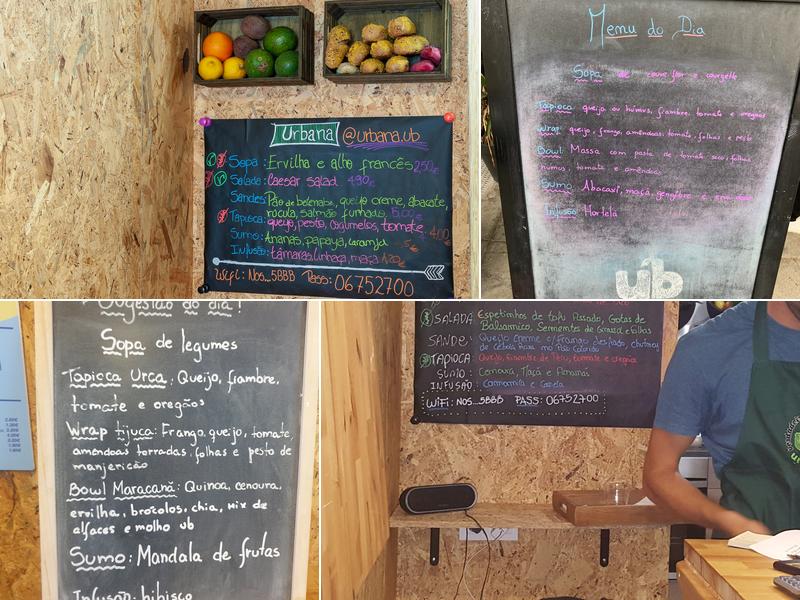 Urbana @urbana.ub
Sopa: Ervilha e alho francês 2,50€
Salada: Caesar salad 4,90€
Sandes: Pão de beterraba, queijo creme, abacate,
rúcula, salmão fumado. 5,00€
Tapioca: queijo, pesto, cogumelos, tomate 4,00
Sumo: Ananás, papaya, laranja
Infusão: tâmaras, linhaça, maçã 1,20€
Wifi: Nos_5BBB Pass: 06752700
Menu do Dia
Sopa de couve flor e courgette
Tapioca queijo ou húmus, fiambre, tomate e oregãos
Wrap queijo, frango, amêndoas, tomate, folhas e pesto
Bowl Massa com pasta de tomate seco, folhas
húmus, tomate e amêndoas
Sumo Abacaxi, maçã, gengibre e
Infusão Hortelã
ub
Sugestão do dia!
Sopa de legumes
Tapioca Urca: Queijo, fiambre,
tomate e oregãos
Wrap tijuca: Frango, queijo, tomate,
amendoas torradas, folhas e pesto de
manjericão
Bowl Maracanã: Quinoa, cenoura,
ervilha, brocolos, chia, mix de
alfaces e molho ub
Sumo: Mandala de frutas
Infusão: hibisco
SALADA: Espetinhos de tofu Assado, Gotas de
Balsamico, Sementes de Girassol e folhas
SANDE: Queijo creme c/ Frango desfiado, chutney
de Cebola Roxa no Pão
TAPIOCA: Queijo, fiambre de Peru, tomate e oregãos
SUMO: Cenoura, Maçã e Ananás
INFUSÃO: Camomila e Canela
WiFi: NOS_5BBB PASS: 06752700